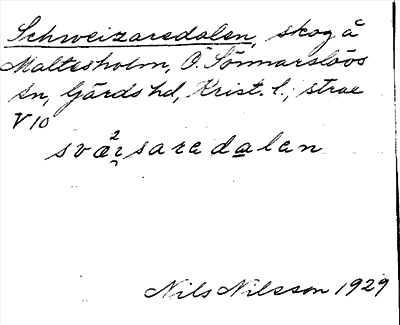 Schweizaredalen, skog å
Maltesholm, Ö. Sönnarslövs
sn, Gärds hd, Krist. l.,
V 10
svær̥²saredalen
Nils Nilsson 1929